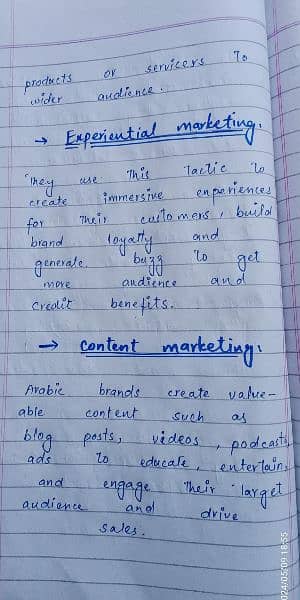 products or servicers To
wider audience.
→ Experiential marketing.
They use This Tactic To
create immersive enperiences
for Their customers, build
brand loyalty and
generate buzz To get
more audience and
credit benefits.
→ Content marketing.
Arabic brands create value-
able content such as
blog posts, videos, podcasts,
ads To educate, entertain,
and engage Their Target
audience and drive
sales.
2024/05/09 18:55